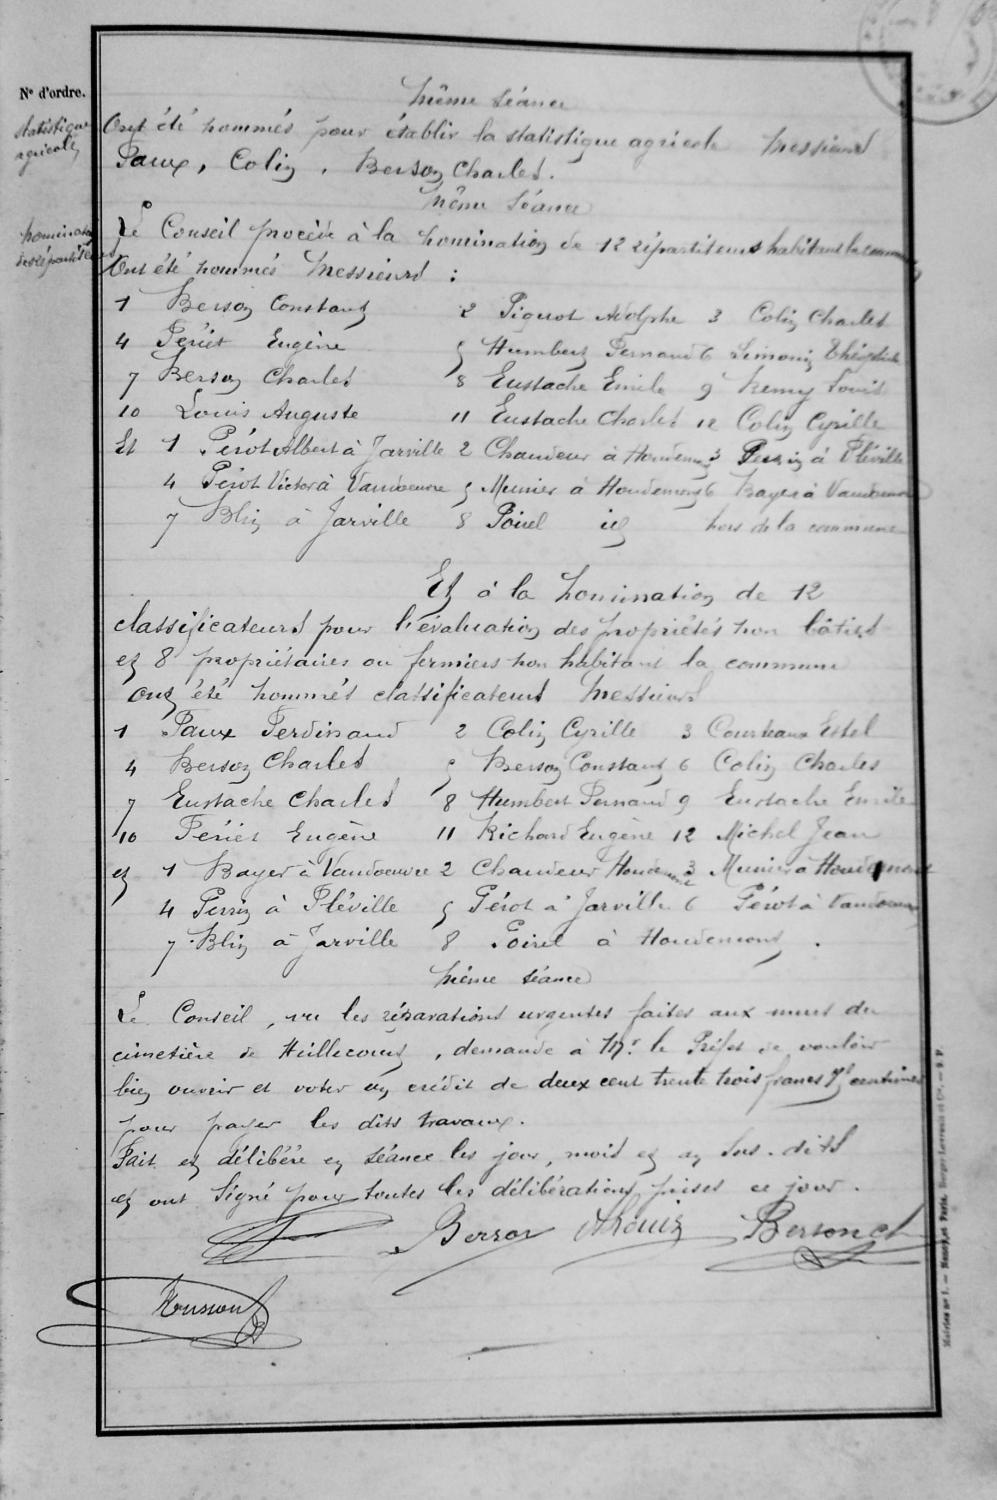 Nº d'ordre.
même séance
statistique
agricole
Ont été nommés pour établir la statistique agricole Messieurs
Paux, Colin, Berson Charles.
même séance
nomination
des répartiteurs
Le Conseil procède à la nomination de 12 répartiteurs habitant la commune
Ont été nommés Messieurs :
1 Berson Constant 2 Piquot Adolphe 3 Colin Charles
4 Feriet Eugène 5 Humbert Fernand 6 Simonin
7 Berson Charles 8 Eustache Emile 9 Remy Louis
10 Louis Auguste 11 Eustache Charles 12 Colin Cyrille
Et 1 Pérot Albert à Jarville 2 Chaudeur à Houdemont 3 Perrin à Fléville
4 Pérot Victor à Vandoeuvre 5 Munier à Houdemont 6 Bayer à Vandoeuvre
7 Blin à Jarville 8 Poirel id hors de la commune
Et à la nomination de 12
classificateurs pour l'évaluation des propriétés non bâties
et 8 propriétaires ou fermiers non habitant la commune
ont été nommés classificateurs Messieurs
1 Paux Ferdinand 2 Colin Cyrille 3 Courteaux Estel
4 Berson Charles 5 Berson Constant 6 Colin Charles
7 Eustache Charles 8 Humbert Fernand 9 Eustache Emile
10 Feriet Eugène 11 Richard Eugène 12 Michel Jean
et 1 Bayer à Vandoeuvre 2 Chaudeur Houdemont 3 Munier à Houdemont
4 Perrin à Fléville 5 Pérot à Jarville 6 Pérot à Vandoeuvre
7 Blin à Jarville 8 Poirel à Houdemont.
même séance
Le Conseil, vu les réparations urgentes faites aux murs du
cimetière de Heillecourt, demande à Mr. le Préfet de vouloir
bien ouvrir et voter un crédit de deux cent trente trois francs centimes
pour payer les dits travaux.
Fait et délibéré en séance les jour, mois et an sus-dits
et ont signé pour toutes les délibérations prises ce jour.
Berson Bersonch
Mairies nº 1. — Nancy et Paris. Berger-Levrault et Cie. — S. P.